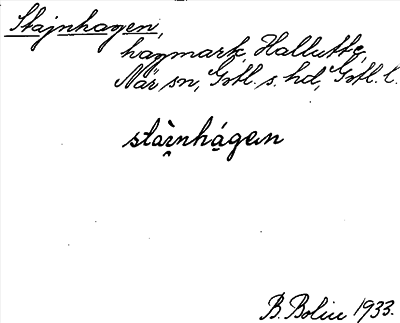 Stajnhagen,
hagmark, Hallutte,
När sn, Gotl. s. hd, Gotl. l.
stàr̯nhá̱gen
B. Bolin 1933.